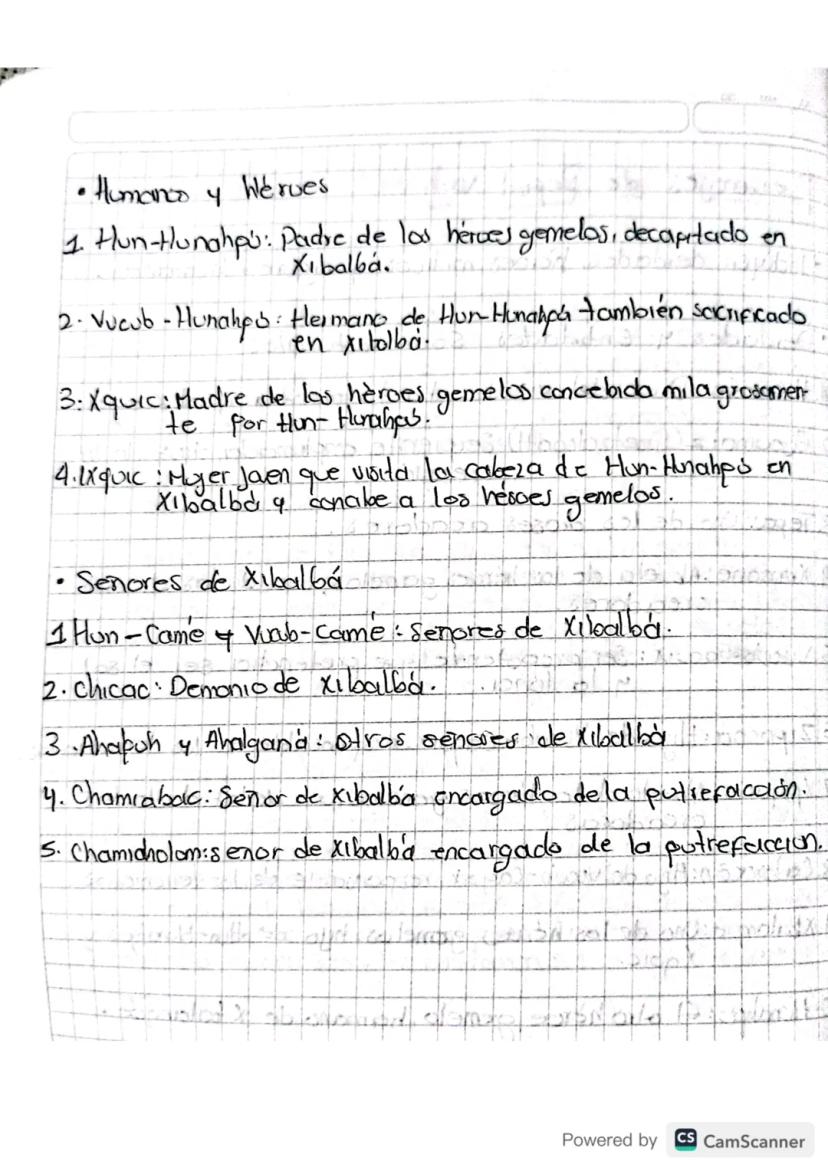 • Humanos y Héroes
1. Hun-Hunahpú: Padre de los héroes gemelos, decapitado en
Xibalbá.
2. Vucub-Hunahpú: Hermano de Hun-Hunahpú también sacrificado
en Xibalbá.
3. Xquic: Madre de los hèroes gemelos concebida milagrosamen-
te por Hun-Hunahpú.
4. Ixquic: Mujer joven que visita la cabeza de Hun-Hunahpú en
Xibalbá y concibe a los héroes gemelos.
• Senores de Xibalbá
1 Hun-Camé y Vucub-Camé: Senores de Xibalbá.
2. Chicac: Demonio de Xibalbá.
3. Ahapuh y Ahalganá: Otros senores de Xibalbá
4. Chamiabac: Señor de Xibalbá encargado de la putrefacción.
5. Chamiaholom: senor de Xibalbá encargado de la putrefaccion.
Powered by CS CamScanner